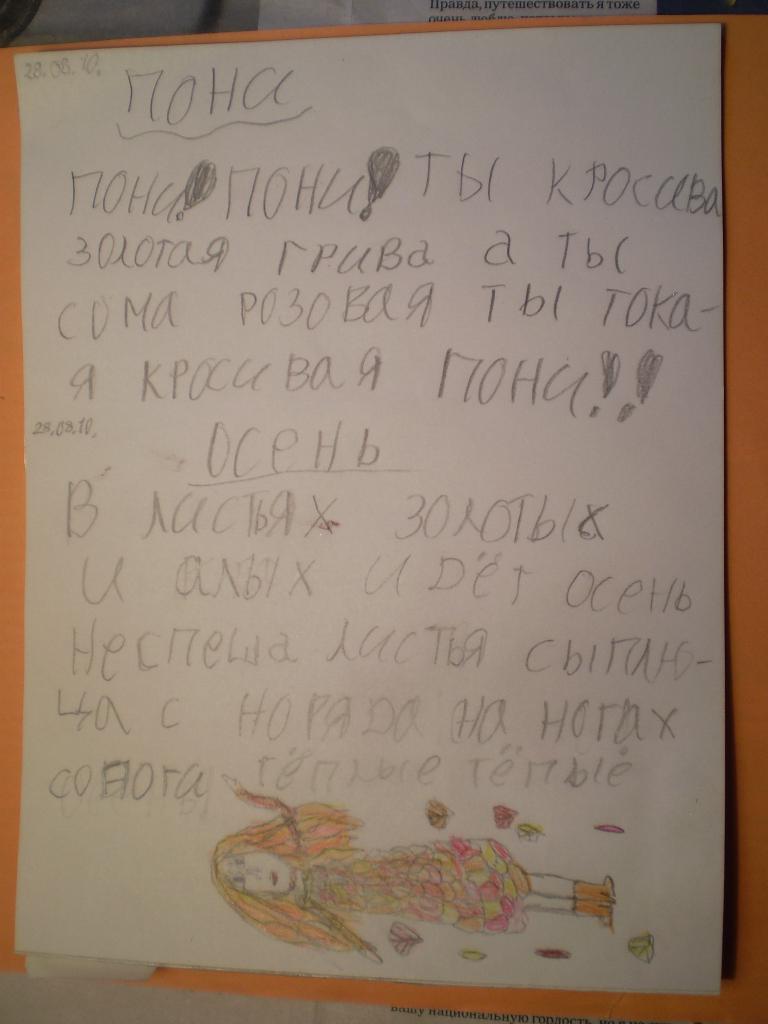 Правда, путешествовать я тоже
28.08.10.
ПОНИ
ПОНИ! ПОНИ! ТЫ КРОСИВА
ЗОЛОТАЯ ГРИВА А ТЫ
СОМА РОЗОВАЯ ТЫ ТОКА-
Я КРОСИВАЯ ПОНИ!!
28.08.10.
ОСЕНЬ
В ЛИСТЬЯХ ЗОЛОТЫХ
И АЛЫХ ИДЁТ ОСЕНЬ
НЕСПЕША ЛИСТЬЯ СЫПЛЮ-
ЦА С НОРЯДА НА НОГАХ
СОПОГА ТЁПЛЫЕ ТЁПЫЕ
вашу национальную гордость, но я не